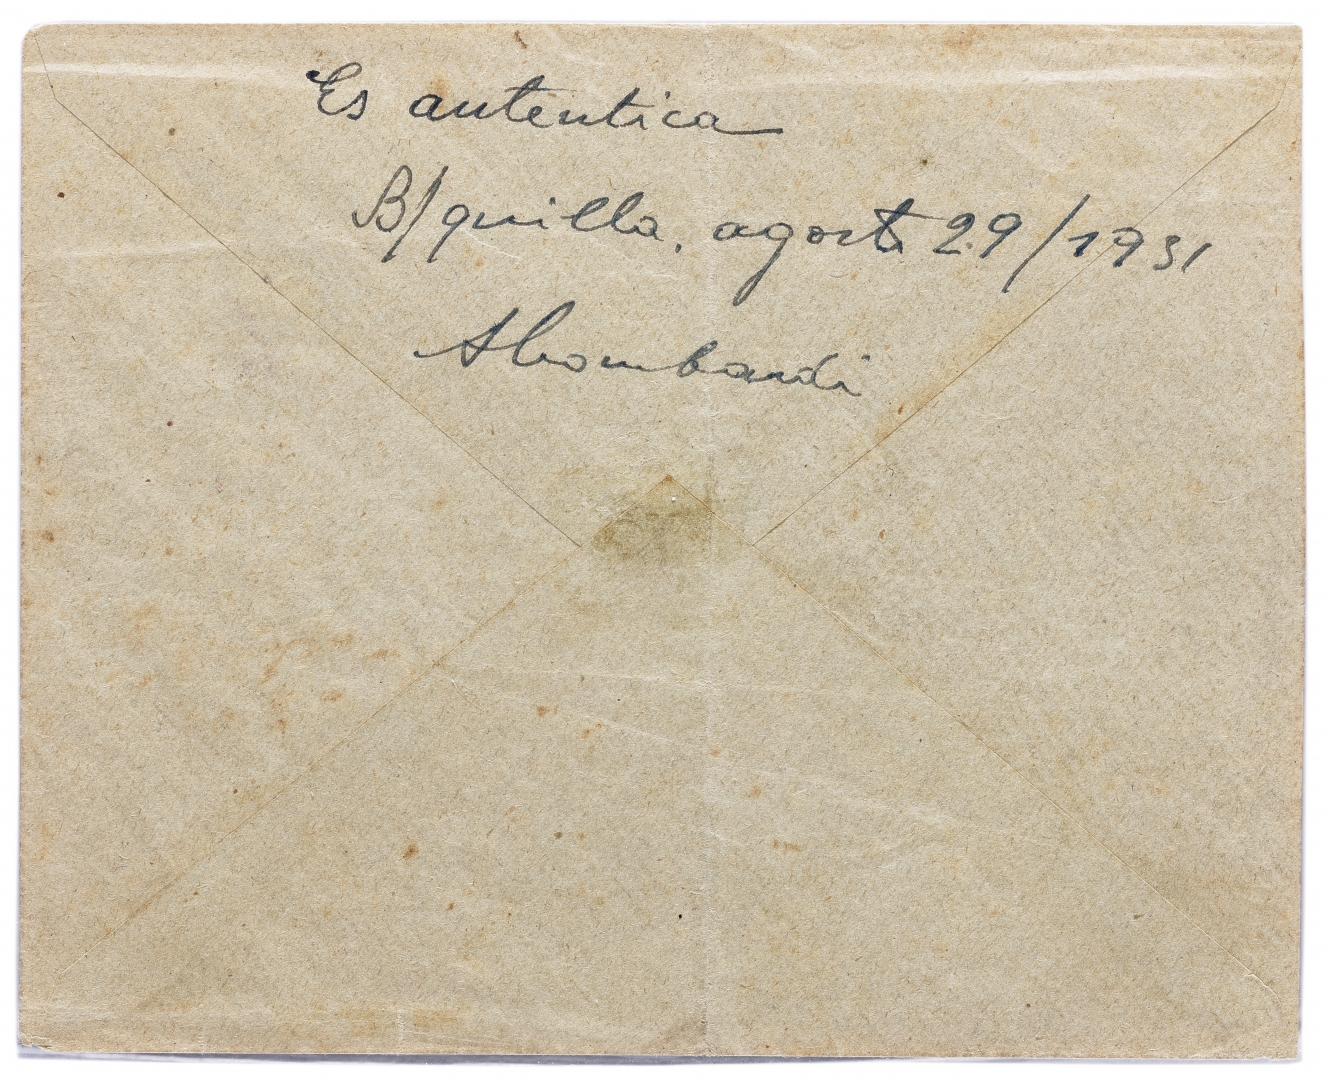 Es autentica
B/quilla, agosto 29/1931